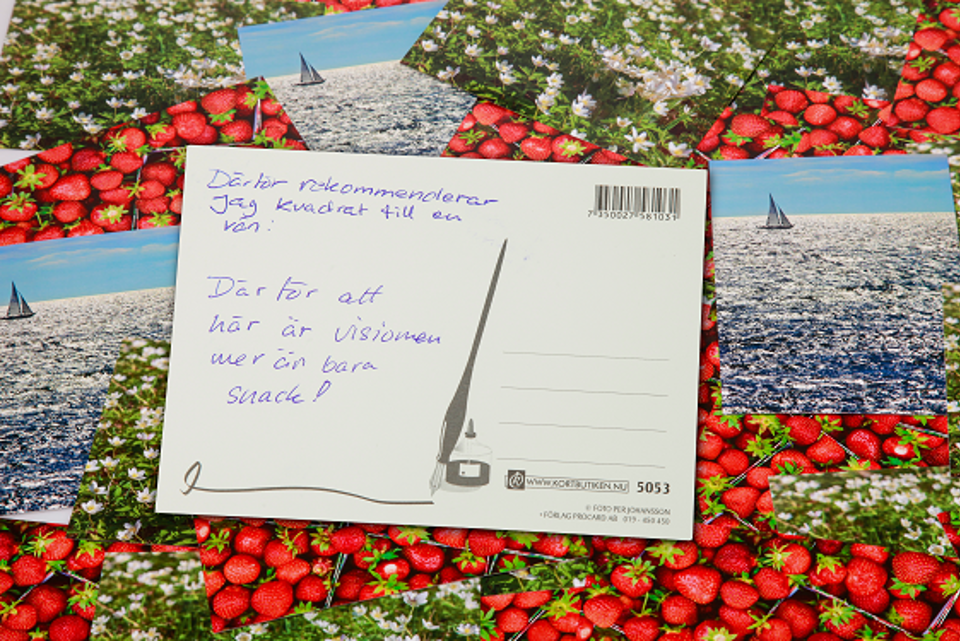 Därför rekommenderar
jag kvadrat till en
vän:
Därför att
här är visionen
mer än bara
snack!
7 350027 581031
WWW.KORTBUTIKEN.NU 5053
© FOTO PER JOHANSSON
• FÖRLAG PROCARD AB 019 - 450 450